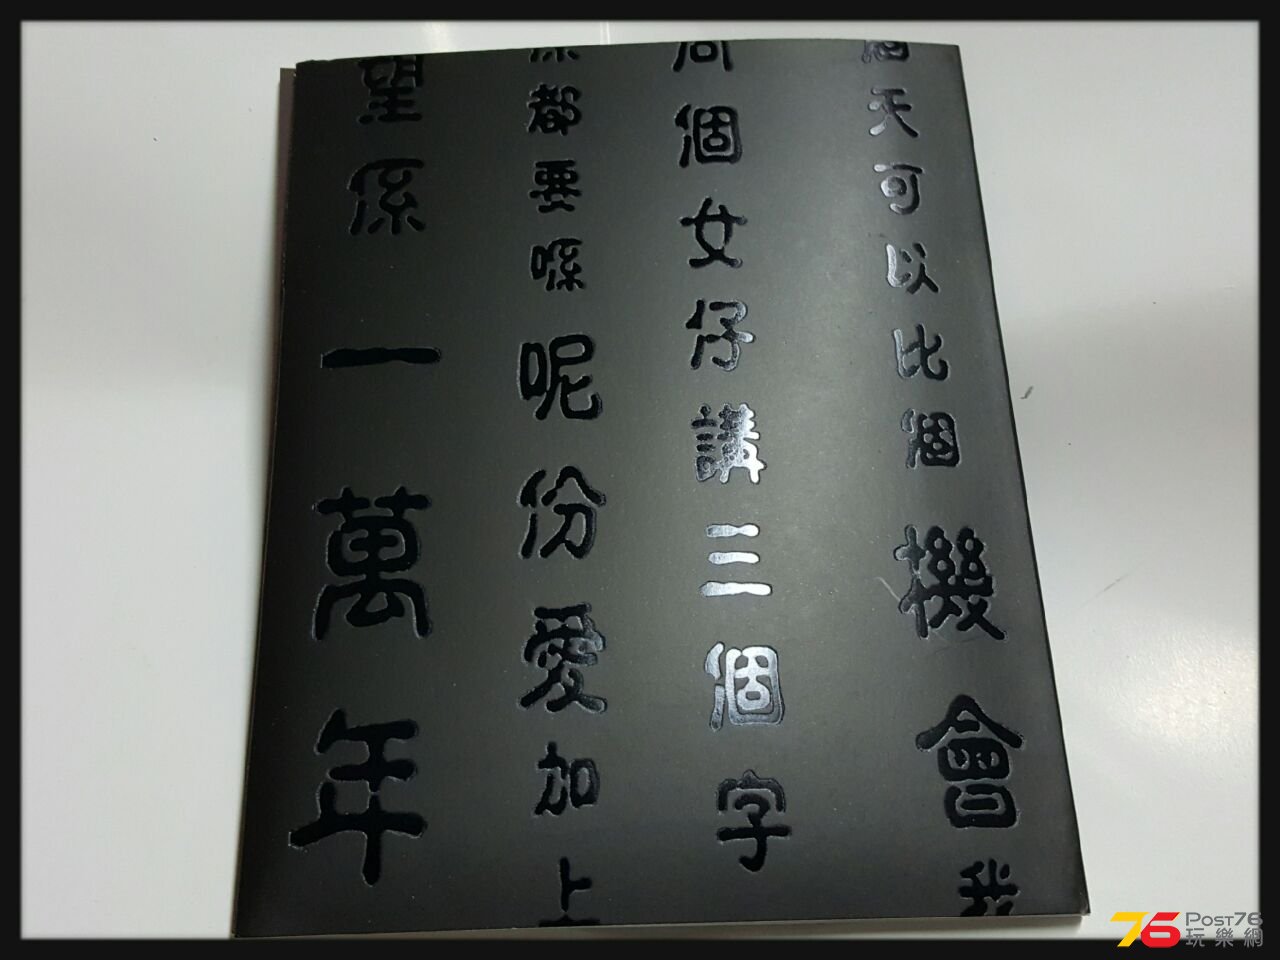 個天可以比個機會我
同個女仔講三個字
係都要喺呢份愛加上
望係一萬年
76 Post76
玩樂網